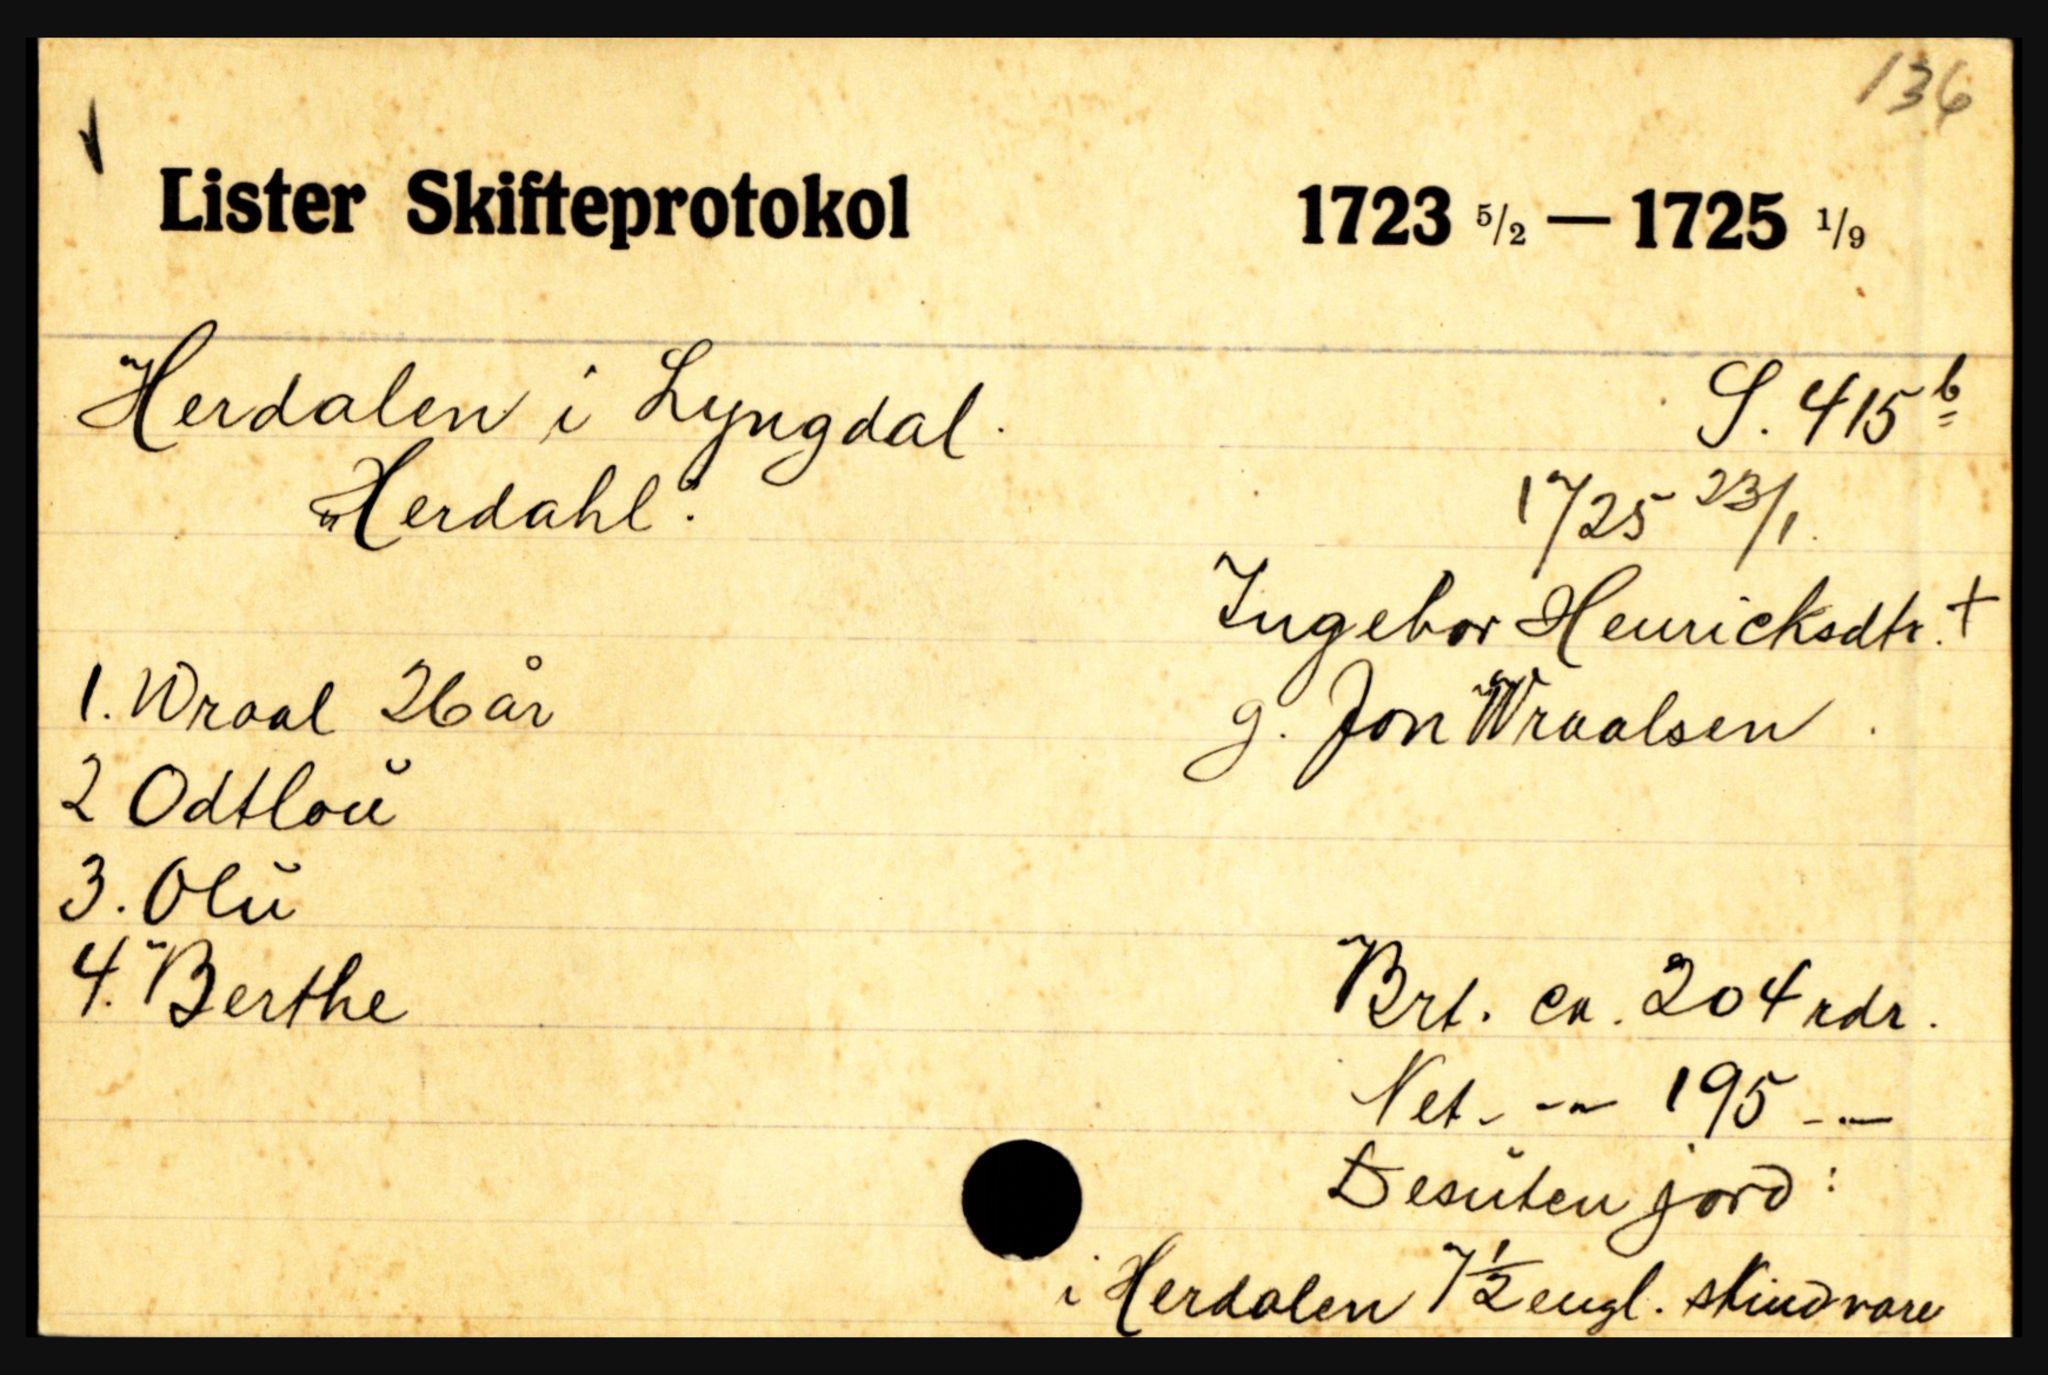 136
Lister Skifteprotokol 1723 5/2 — 1725 1/9
Herdalen i Lyngdal. S. 415 b
"Herdahl". 1725 23/1.
Ingebor Henricksdtr. +
1. Wraal 26 år g. Jon Wraalsen.
2 Odtlou
3. Olu
4. Berthe Brt. ca. 204 rdr.
Net. -〃- 195 -〃-
Desuten jord:
i Herdalen 7 1/2 engl. skindvare